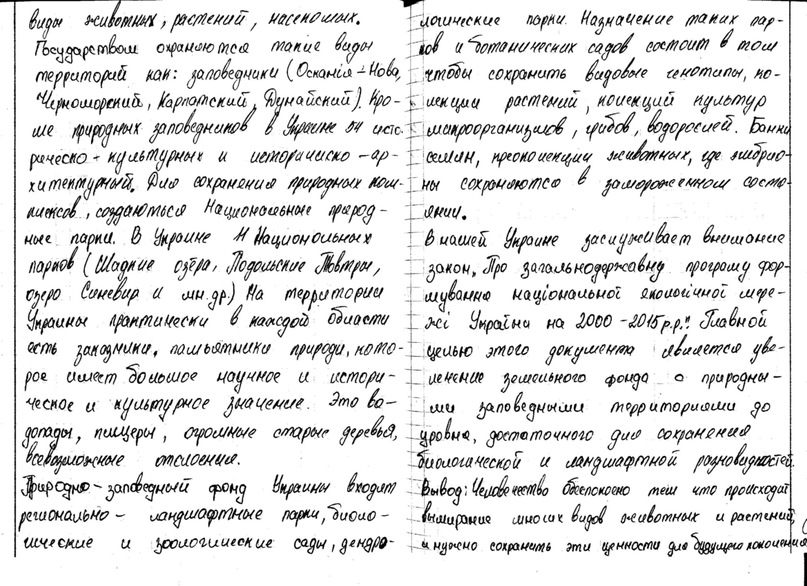 виды животных, растений, насекомых.
Государством охраняются такие виды
территорий как: заповедники (Оскания-Нова,
Черноморский, Карпатский, Дунайский). Кро-
ме природных заповедников в Украине 54 исто-
рическо-культурных и историческо-ар-
хитектурный. Для сохранения природных ком-
плексов, создаються Национальные природ-
ные парки. В Украине 11 Национальных
парков (Шацкие озёра, Подольские Товтры,
озеро Синевир и мн.др.) На территории
Украины практически в каждой области
есть заказники, памьятники природы, кото-
рое имеет большое научное и истори-
ческое и культурное значение. Это во-
допады, пищеры, огромные старые деревья,
всевозможные отслоения.
Природно-заповедный фонд Украины входят
регионально-ландшафтные парки, биоло-
гические и зоологические сады, дендро-
логические парки. Назначение таких пар-
ков и ботанических садов состоит в том
чтобы сохранить видовые генотипы, ко-
лекции растений, колекций культур
микроорганизмов, грибов, водорослей. Банки
семян, преоколекции животных, где эмбрио-
ны сохраняются в замороженном состо-
янии.
В нашей Украине заслуживает внимание
закон „Про загальнодержавну програму фор-
мування національної екологічної мере-
жі України на 2000-2015р.р." Главной
целью этого документа является уве-
личение земельного фонда с природны-
ми заповедными территориями до
уровня, достаточного для сохранения
биологической и ландшафтной разновидностей.
Вывод: Человечество обеспокоено тем что происходит
вымирание многих видов животных и растений,
и нужно сохранить эти ценности для будущего поколения